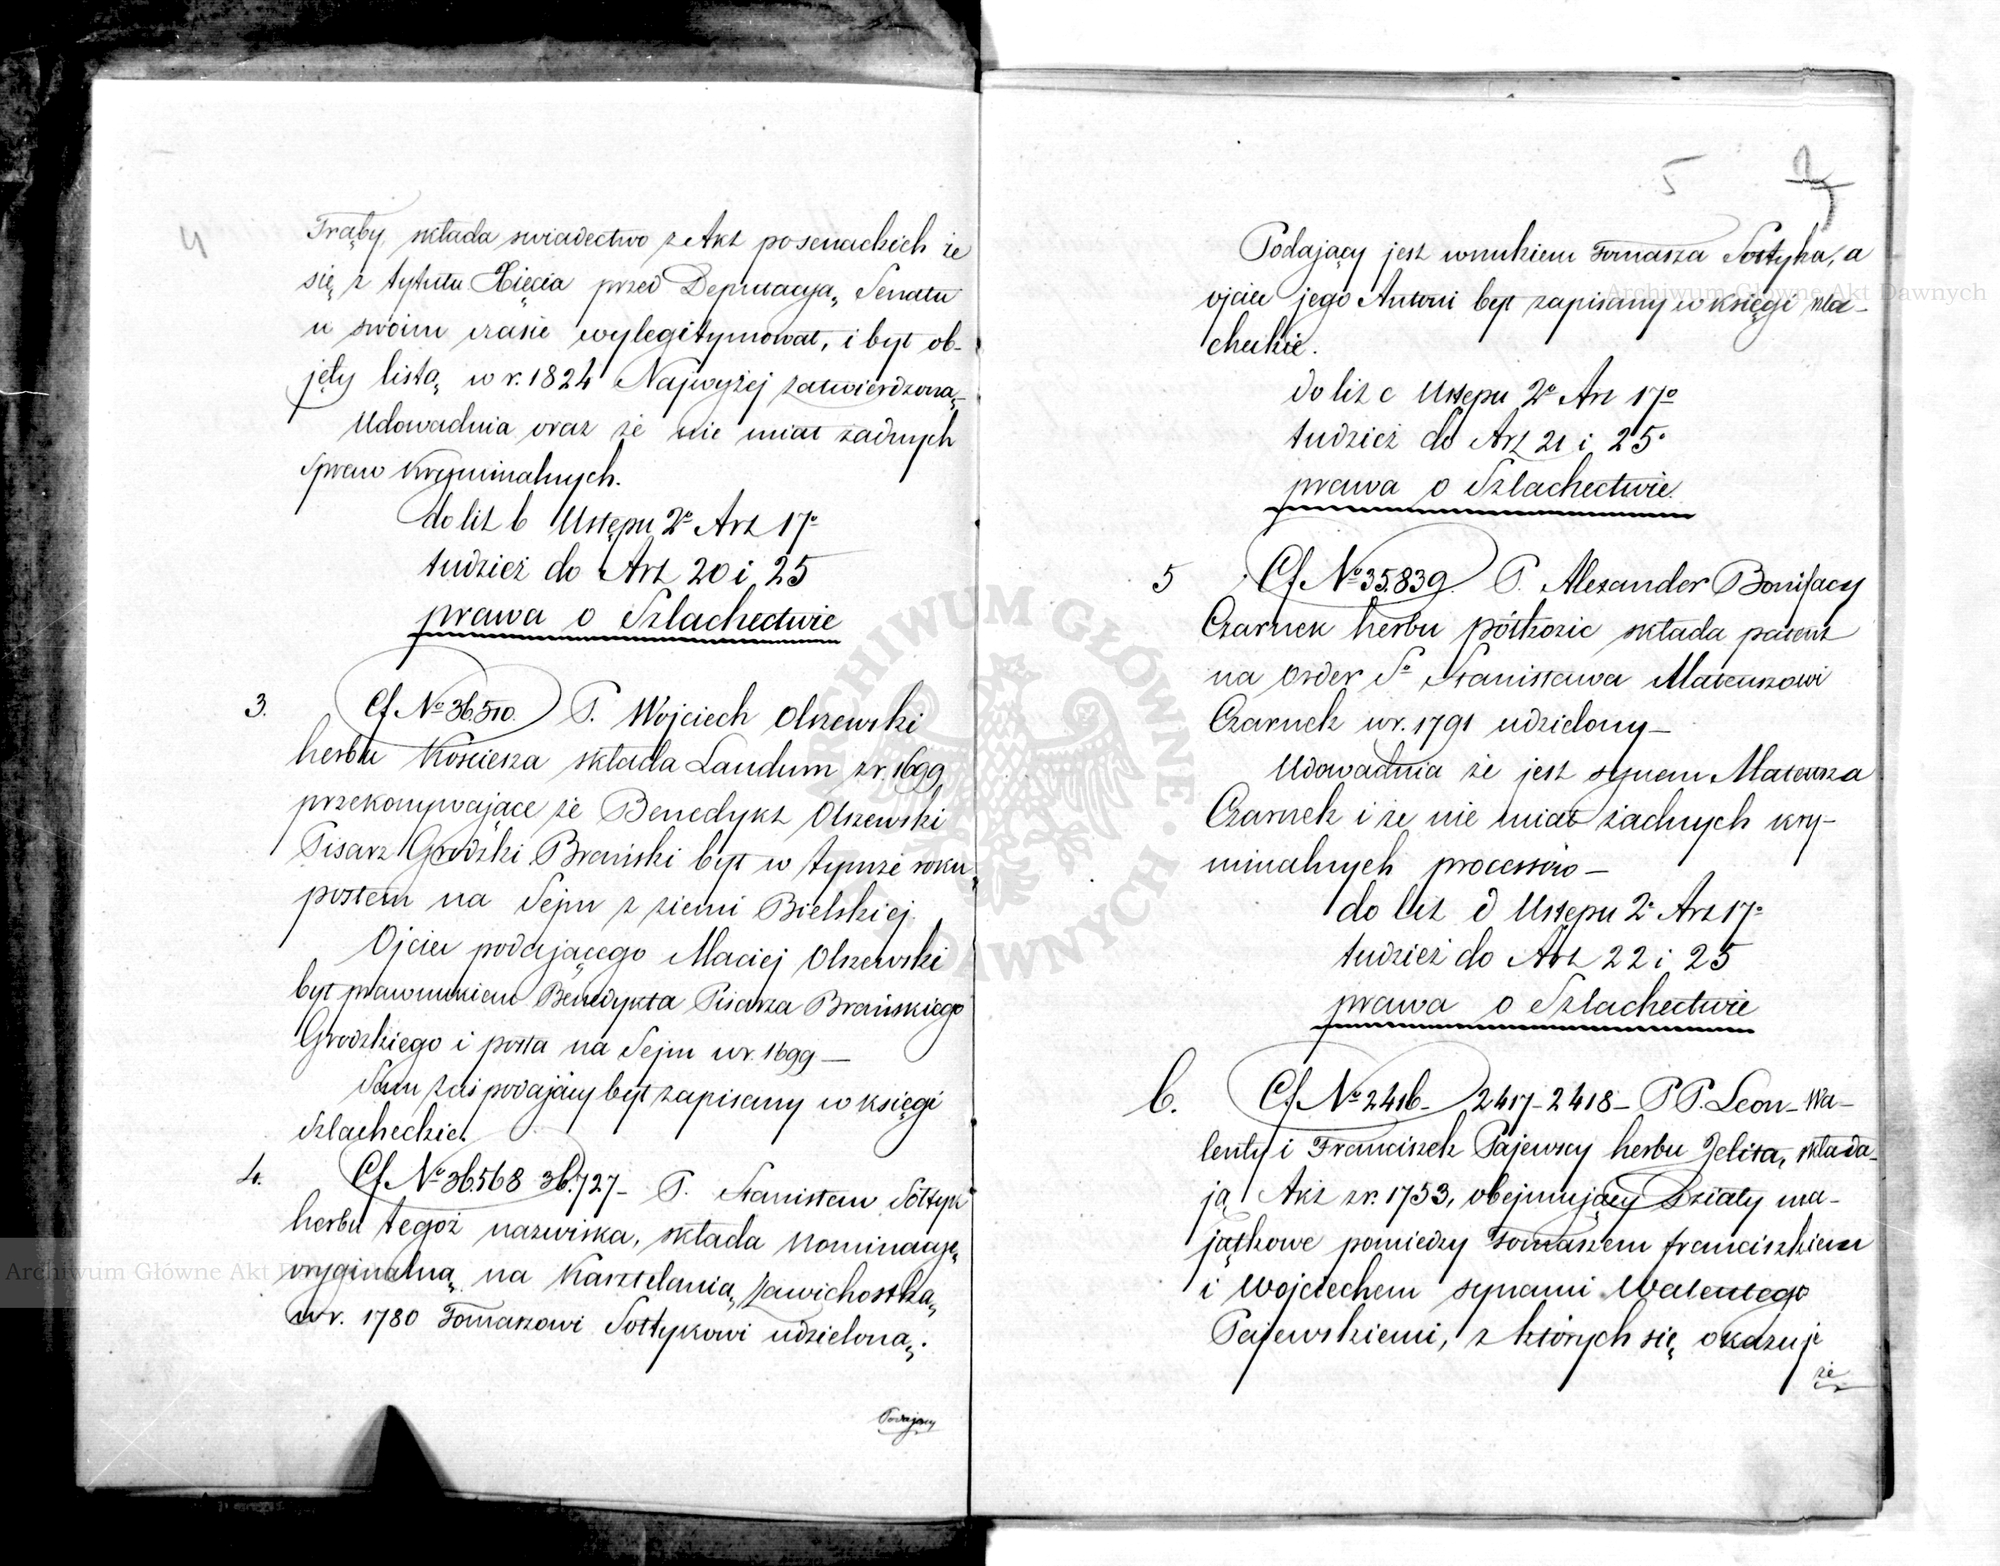 4
Trąby, składa swiadectwo z Akt posenackich że
się z tytułu Xięcia przed Deputacyą, Senatu
u swoim czasie wylegitymował, i był ob-
jęty listą, w r. 1824 Najwyżej zatwierdzoną,-
Udowadnia oraz że nie miał żadnych
spraw kryminalnych.
do lit b Ustępu 2º Art 17º
tudzież do Art 20 i 25
prawa o Szlachectwie
3. Cf Nº 36.510. P. Wojciech Olszewski
herbu Kościesza składa Laudum z r. 1699,
przekonywające że Benedykt Olszewski
Pisarz Grodzki Brański był w tymże roku
posłem na Sejm z ziemi Bielskiej.
Ojciec podającego Maciej Olszewski
był prawnukiem Benedykta Pisarza Brańskiego
Grodzkiego i posła na Sejm w r. 1699 —
Sam zaś podający był zapisany w księgi
szlacheckie.
4. Cf Nº 36.568 36.727 - P. Stanisław Sołtyk
herbu tegoż nazwiska, składa nominacyę,
oryginalną, na Kasztelanią, Zawichostską,
w r. 1780 Tomaszowi Sołtykowi udzieloną,.
Podający
5
Podający jest wnukiem Tomasza Sołtyka, a
ojciec jego Antoni był zapisany w księgi szla-
checkie.
do lit c Ustępu 2º Art 17º
tudzież do Art 21 i 25.
prawa o Szlachectwie.
5 Cf Nº 35.839. P. Alexander Bonifacy
Czarnek herbu półkozic składa patent
na order Sº Stanisława Mateuszowi
Czarnek w r. 1791 udzielony —
Udowadnia że jest synem Mateusza
Czarnek i że nie miał żadnych kry-
minalnych processów —
do lit d Ustępu 2º Art 17º
tudzież do Art 22 i 25
prawa o Szlachectwie
6. Cf Nº 2416 - 2417 - 2418 - P P. Leon - Wa-
lenty i Franciszek Pajewscy herbu Jelita, składa-
ją Akt z r. 1753, obejmujący Działy ma-
jątkowe pomiędzy Tomaszem franciszkiem
i Wojciechem synami Walentego
Pajewskiemi, z których się, okazuje
że
ARCHIWUM GŁÓWNE AKT DAWNYCH
Archiwum Główne Akt Dawnych
Archiwum Główne Akt D